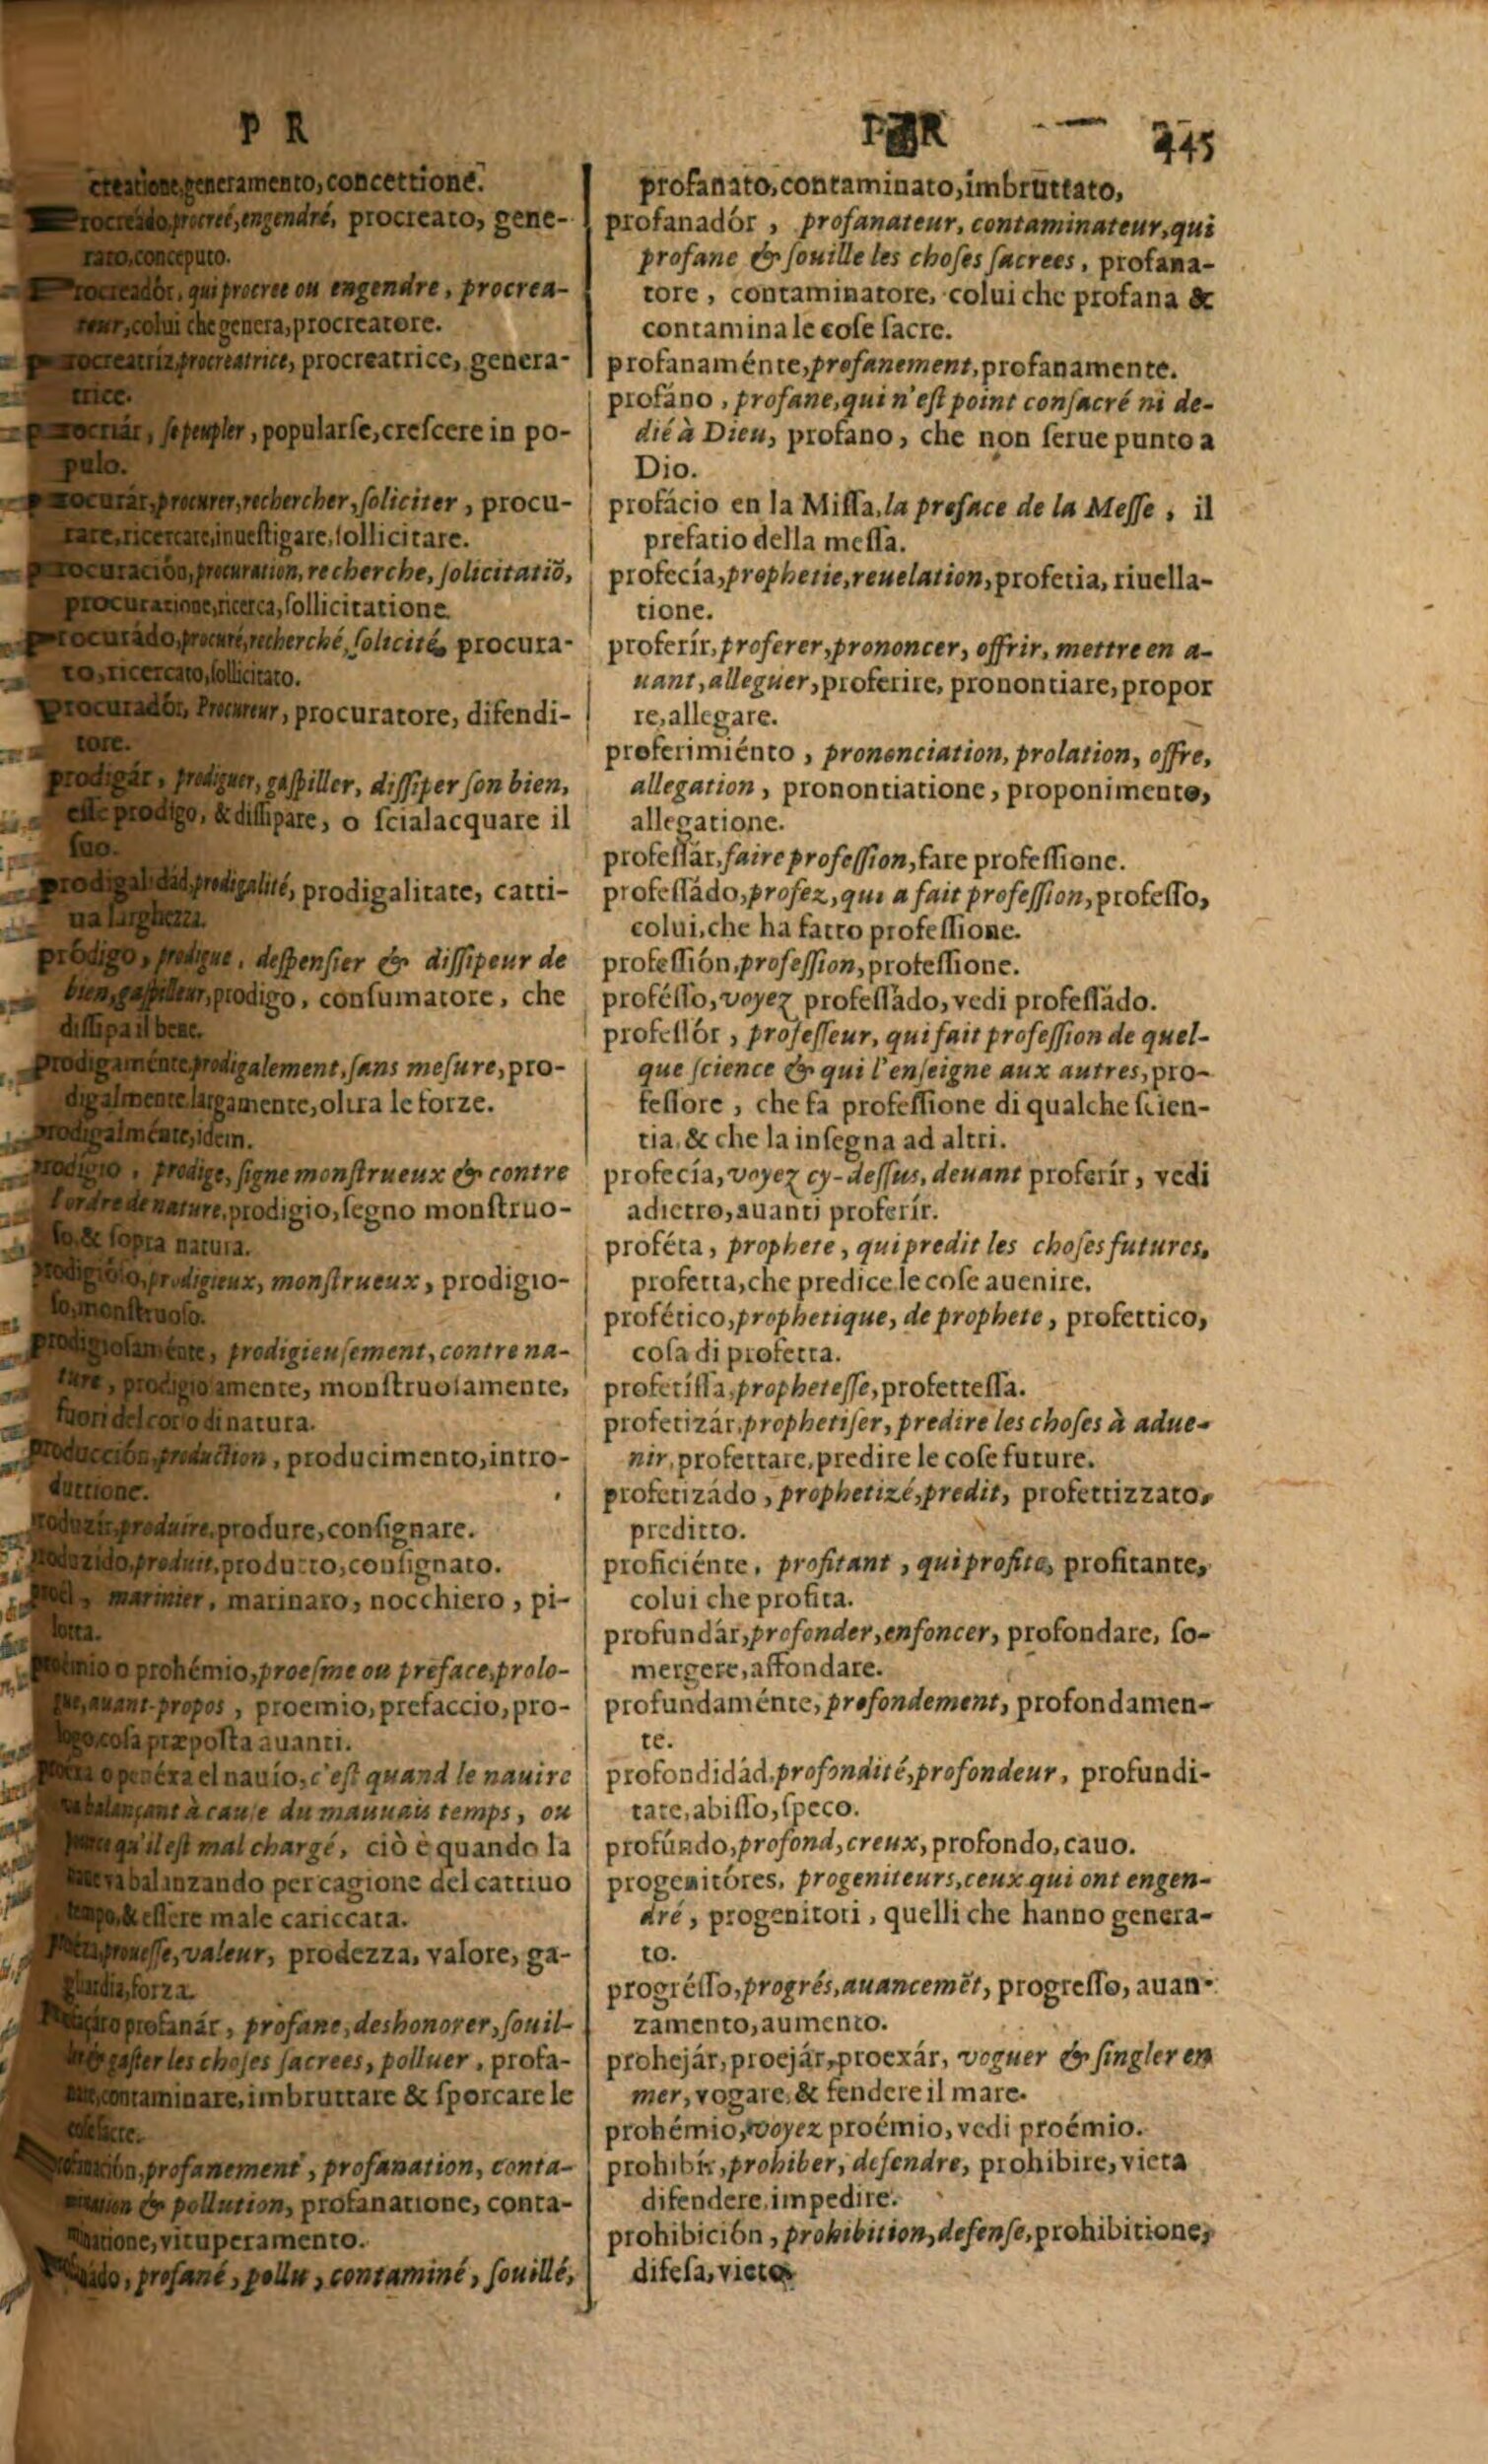 P R
creatione, generamento, concettione.
Procreádo, procreé, engendré, procreato, gene-
rato, conceputo.
Procreadór, qui procree ou engendre, procrea-
teur, colui che genera, procreatore.
procreatriz, procreatrice, procreatrice, genera-
trice.
procriár, se peupler, popularſe, creſcere in po-
pulo.
procurár, procurer, rechercher, ſoliciter, procu-
rare, ricercare, inueſtigare, ſollicitare.
procuración, procuration, recherche, ſolicitatiõ,
procuratione, ricerca, ſollicitatione
procurádo, procuré, recherché, ſolicité, procura-
to, ricercato, ſollicitato.
procuradór, Procureur, procuratore, difendi-
tore.
prodigár, prodiguer, gaſpiller, diſſiper ſon bien,
eſſe prodigo, & diſſipare, o ſcialacquare il
ſuo.
prodigalidád, prodigalité, prodigalitate, catti-
ua larghezza.
pródigo, prodigue, deſpenſier & diſſipeur de
bien, gaſpilleur, prodigo, conſumatore, che
diſſipa il bene.
prodigaménte, prodigalement, ſans meſure, pro-
digalmente, largamente, oltra le forze.
prodigalménte, idem.
prodigio, prodige, ſigne monſtrueux & contre
l'ordre de nature, prodigio, ſegno monſtruo-
ſo, & ſopra natura.
prodigióſo, prodigieux, monſtrueux, prodigio-
ſo, monſtruoſo.
prodigioſaménte, prodigieuſement, contre na-
ture, prodigioſamente, monſtruoſamente,
fuori del corſo di natura.
producción, production, producimento, intro-
duttione.
produzír, produire, produre, conſignare.
produzido, produit, produtto, conſignato.
proel, marinier, marinaro, nocchiero, pi-
lotta.
proémio o prohémio, proeſme ou preface, prolo-
gue, auant-propos, proemio, prefaccio, pro-
logo, coſa præpoſta auanti.
o penéxa el nauío, c'eſt quand le nauire
va balançant à cauſe du mauuais temps, ou
qu'il eſt mal chargé, ciò è quando la
naue va balanzando per cagione del cattiuo
tempo, & eſſere male cariccata.
proueſſe, valeur, prodezza, valore, ga-
gliardia, forza.
profanár, profane, deshonorer, ſouil-
ler & gaſter les choſes ſacrees, polluer, profa-
nare, contaminare, imbruttare & ſporcare le
coſe ſacre.
profanación, profanement, profanation, conta-
mination & pollution, profanatione, conta-
minatione, vituperamento.
profanádo, profané, pollu, contaminé, ſouillé,
P R 445
profanato, contaminato, imbruttato,
profanadór, profanateur, contaminateur, qui
profane & ſouille les choſes ſacrees, profana-
tore, contaminatore, colui che profana &
contamina le coſe ſacre.
profanaménte, profanement, profanamente.
profáno, profane, qui n'eſt point conſacré ni de-
dié à Dieu, profano, che non ſerue punto a
Dio.
profácio en la Miſſa, la preface de la Meſſe, il
prefatio della meſſa.
profecía, prophetie, reuelation, profetia, riuella-
tione.
proferír, proferer, prononcer, offrir, mettre en a-
uant, alleguer, proferire, prononţiare, propor
re, allegare.
proferimiénto, prononciation, prolation, offre,
allegation, prononţiatione, proponimento,
allegatione.
profeſſár, faire profeſſion, fare profeſſione.
profeſſádo, profez, qui a fait profeſſion, profeſſo,
colui, che ha fatto profeſſione.
profeſſión, profeſſion, profeſſione.
proféſſo, voyez profeſſádo, vedi profeſſádo.
profeſſór, profeſſeur, qui fait profeſſion de quel-
que ſcience & qui l'enſeigne aux autres, pro-
feſſore, che fa profeſſione di qualche ſcien-
tia, & che la inſegna ad altri.
profecía, voyez cy-deſſus, deuant proferír, vedi
adietro, auanti proferír.
proféta, prophete, qui predit les choſes futures,
profetta, che predice le coſe auenire.
profético, prophetique, de prophete, profettico,
coſa di profetta.
profetiſſa, propheteſſe, profetteſſa.
profetizár, prophetiſer, predire les choſes à adue-
nir, profettare, predire le coſe future.
profetizádo, prophetizé, predit, profettizzato,
preditto.
proficiénte, profitant, qui profite, profitante,
colui che profita.
profundár, profonder, enfoncer, profondare, ſo-
mergere, affondare.
profundaménte, profondement, profondamen-
te.
profondidád, profondité, profondeur, profundi-
tate, abiſſo, ſpeco.
profúndo, profond, creux, profondo, cauo.
progenitóres, progeniteurs, ceux qui ont engen-
dré, progenitori, quelli che hanno genera-
to.
progréſſo, progrés, auancemẽt, progreſſo, auan-
zamento, aumento.
prohejár, proejár, proexár, voguer & ſingler en
mer, vogare, & fendere il mare.
prohémio, voyez proémio, vedi proémio.
prohibír, prohiber, defendre, prohibire, vieta
difendere, impedire.
prohibición, prohibition, defenſe, prohibitione,
difeſa, vieto